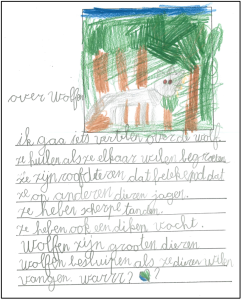 over wolfen
ik gaa iets vertelen over de wolf.
ze huilen als ze elkaar willen begroeten
ze zijn roofdieren dat betekend dat
ze op anderen dieren jagen.
ze heben scherpe tanden.
ze heben ook een diken vacht.
Wolfen zijn grooten dieren
wolfen besluipen als ze dieren wilen
vangen. warrr? ?